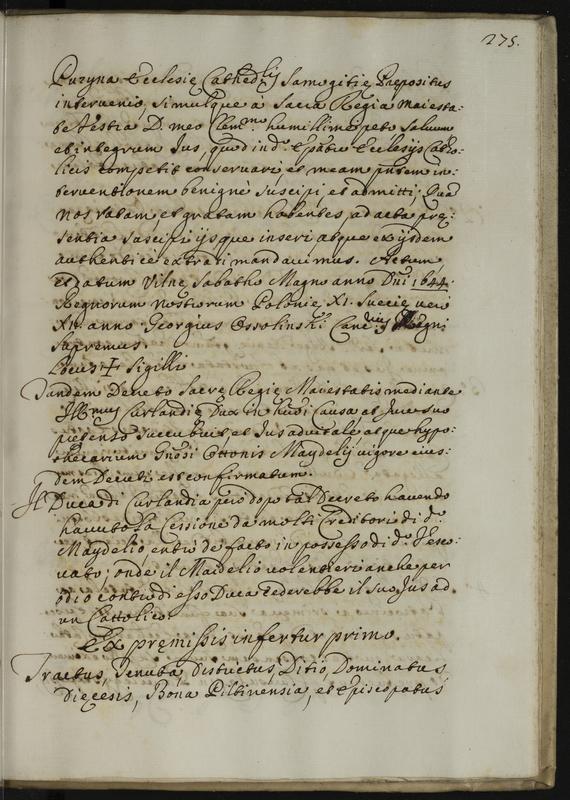 275.
Puzyna Ecclesię Cathedlis Samogitię Prepositus
intervenio, simulque à Sacra Regia Maiesta:
te Vestra D. meo Clemmo. humillime peto Saluum
et integrum Jus, quod ind. Episcopatu Ecclesijs Catto:
licis competit conservari et meam pntem in:
terventionem benignè suscipi et admitti; Quã
nos ratam et gratam habentes, ad acta prę:
sentia suscipi ijsque inseri atque ex ijsdem
authenticè extrati mandavimus. Actum
et datum Vilnę Sabatho Magno anno Dni 1644.
Regnorum nostrorum Polonię XI. Suecię verò
XII. anno. Georgius Ossolinski Cancrius Regni
Supremus.
Locus + Sigilli
Tandem Decreto Sacrę Regię Maiestatis mediante
Illmus Curlandię Dux in hmõi causa et Jure suo
pretenso succubuit, et Jus advitale atque hypo:
thecarium Gnosi Ottonis Maydelij vigore eius:
dem Decreti est confirmatum.
Il Duca di Curlandia però dopo tal Decreto havendo
havuto la Cessione da molti Creditori di do.
Maydelio entrò de facto in possesso di do. Vesco:
vato; onde il Maidelio volentieri anche per
odio contro di esso Duca cederebbe il suo Jus ad
un Cattolico.
Ex pręmissis infertur primo.
Tractus, Tenuta, Districtus, Ditio, Dominatus
Diecesis, Bona Piltinensia, et Episcopatus